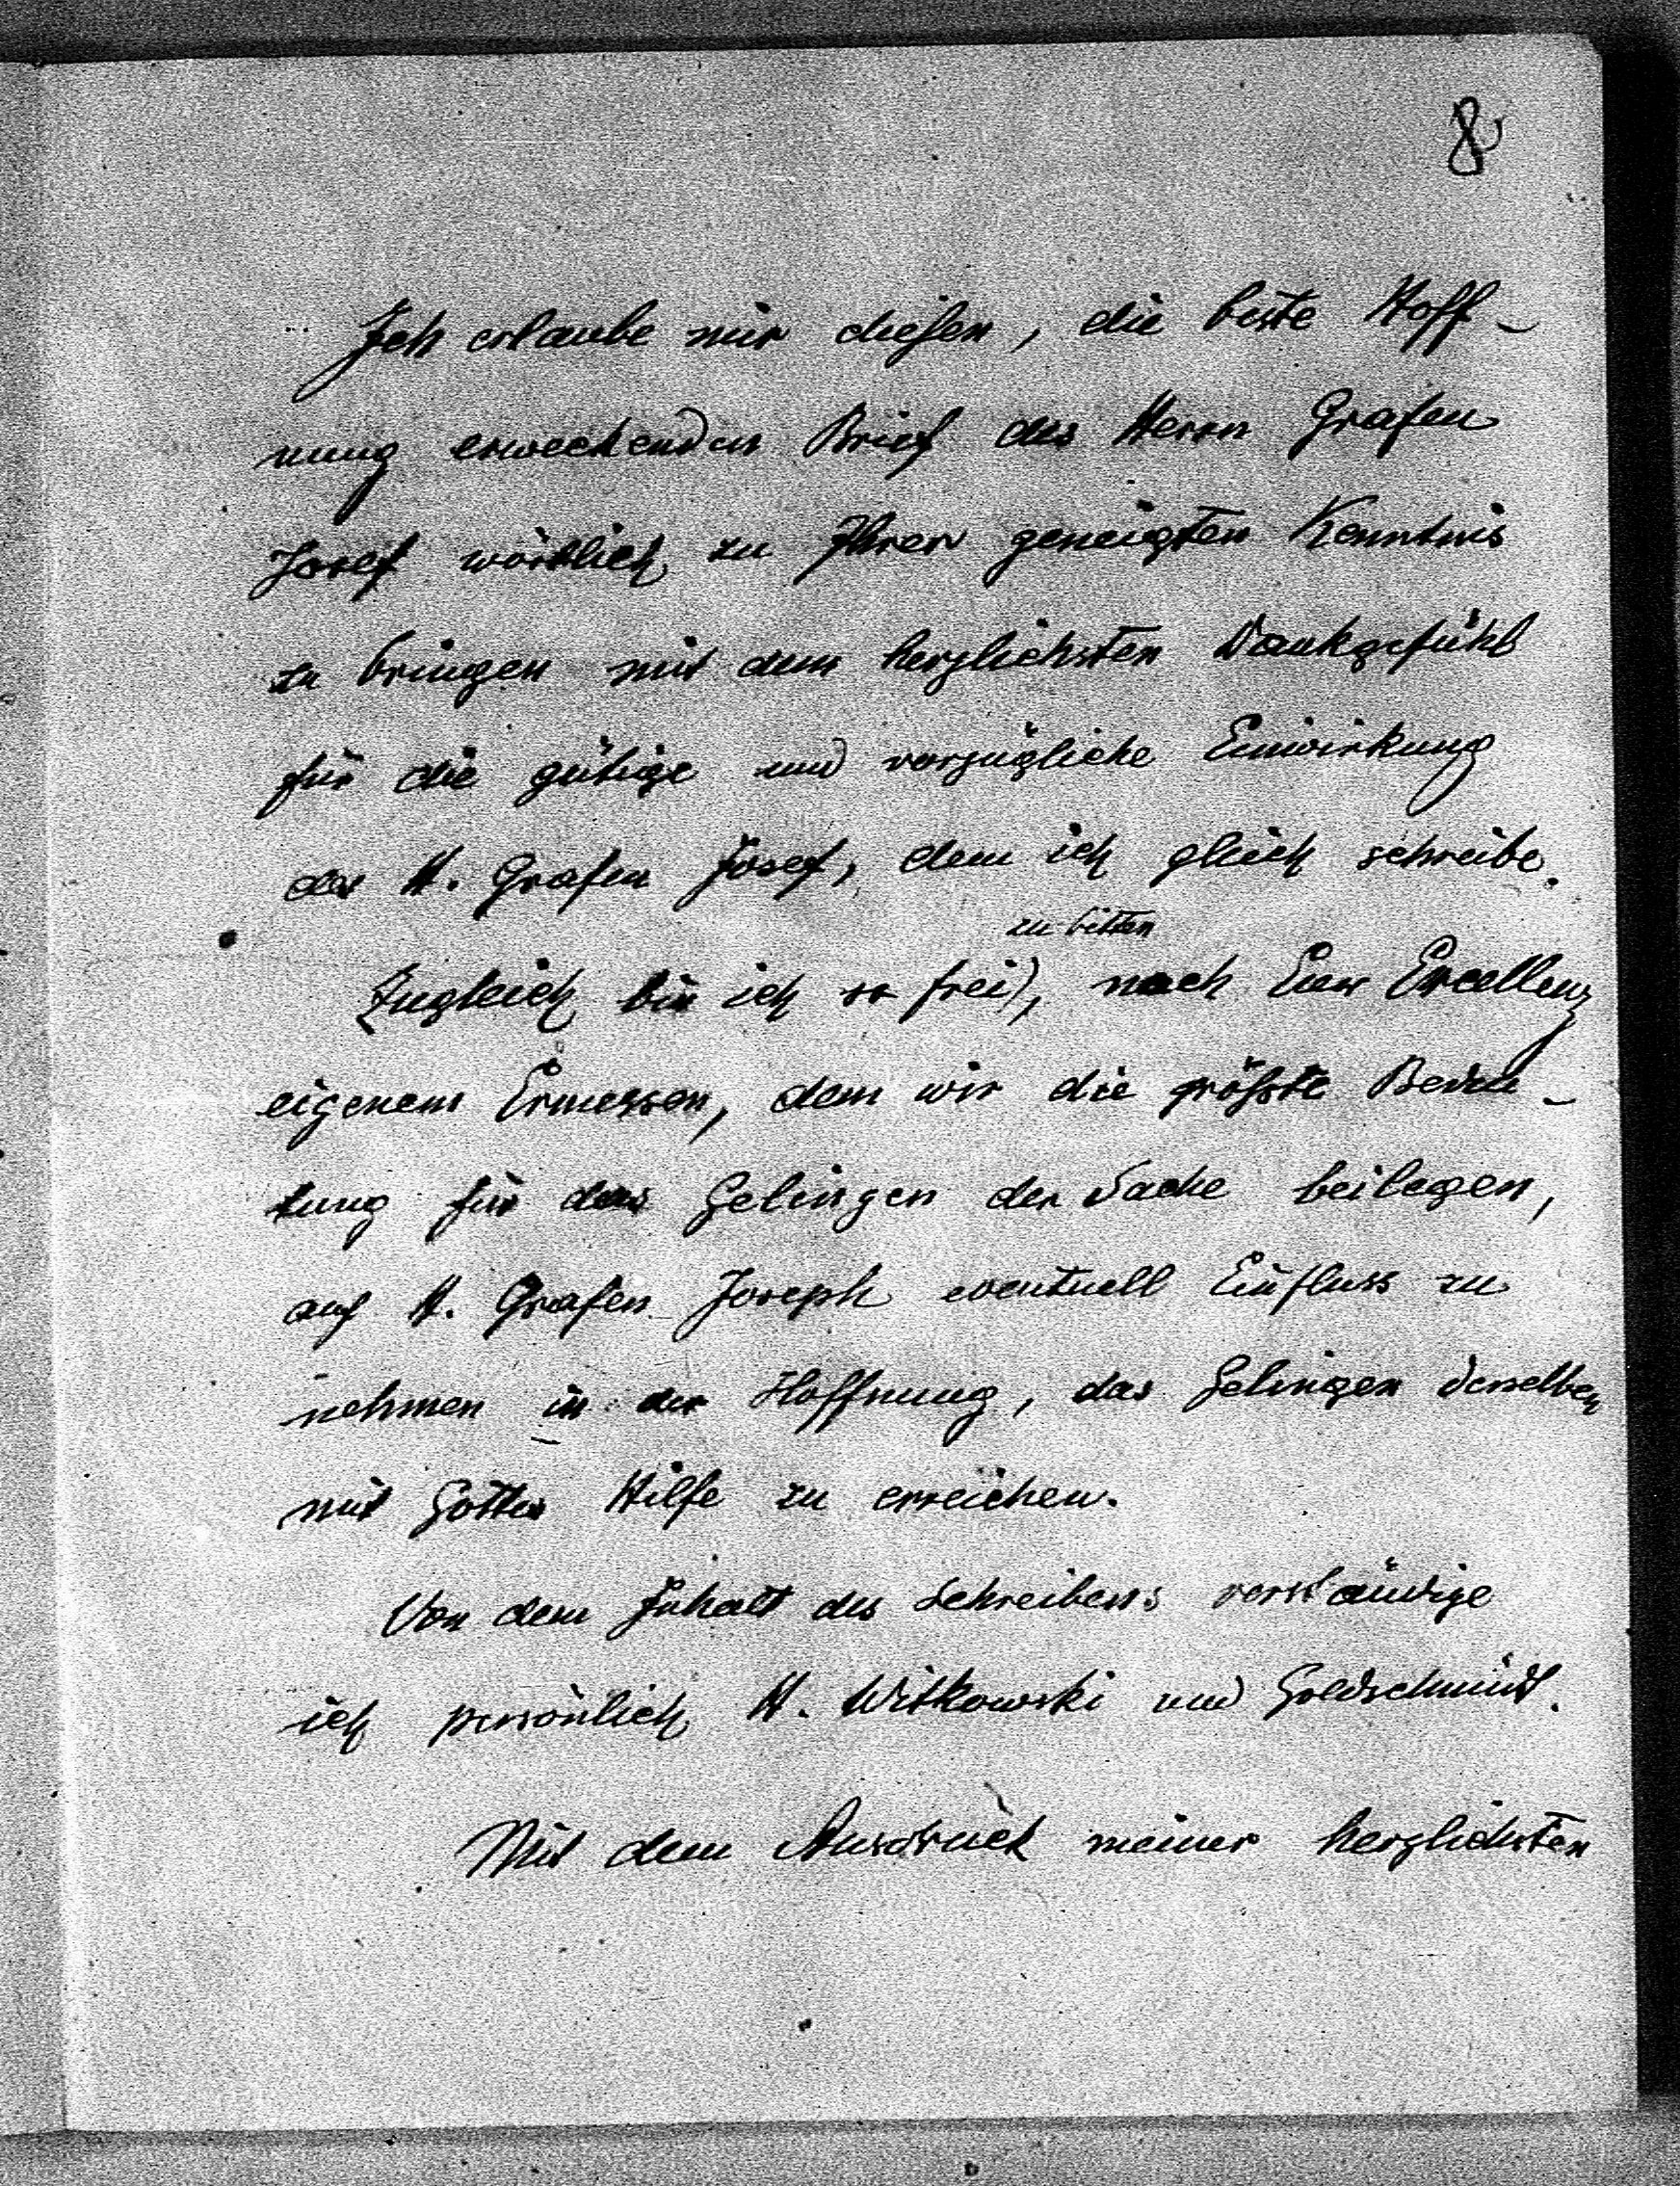 8
Ich erlaube mir diesen, die beste Hoff-
nung erweckenden Brief des Herrn Grafen
Josef wörtlich zu Ihrer geneigten Kenntnis
zu bringen mit dem herzlichsten Dankgefühl
für die gütige und vorzügliche Einwirkung
des H. Grafen Josef, dem ich gleich schreibe.
zu bitten
Zugleich bin ich so frei), nach Euer Excellenz
eigenem Ermessen, dem wir die größte Bedeu-
tung für das Gelingen der Sache beilegen,
auf H. Grafen Joseph eventuell Einfluss zu
nehmen in der Hoffnung, das Gelingen derselben
mit Gottes Hilfe zu erreichen.
Von dem Inhalt des Schreibens verständige
ich persönlich H. Witkowski und Goldschmidt.
Mit dem Ausdruck meiner herzlichsten